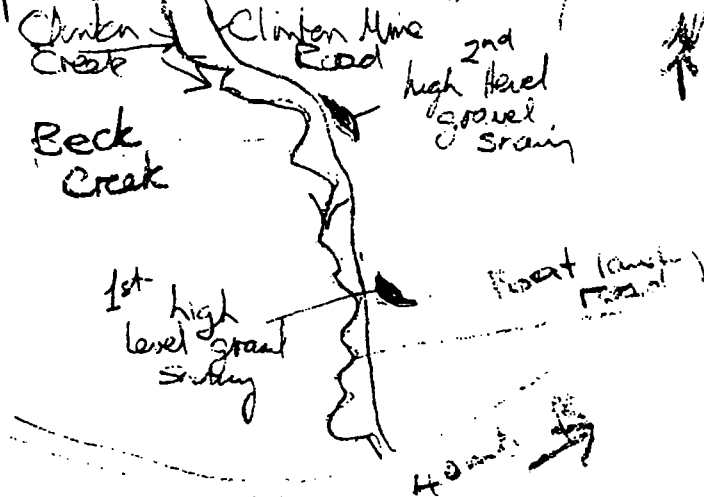 Clinton
Creek
Clinton Mine
Road
2nd
high level
gravel
Beck
Creek
1st
high
level gravel